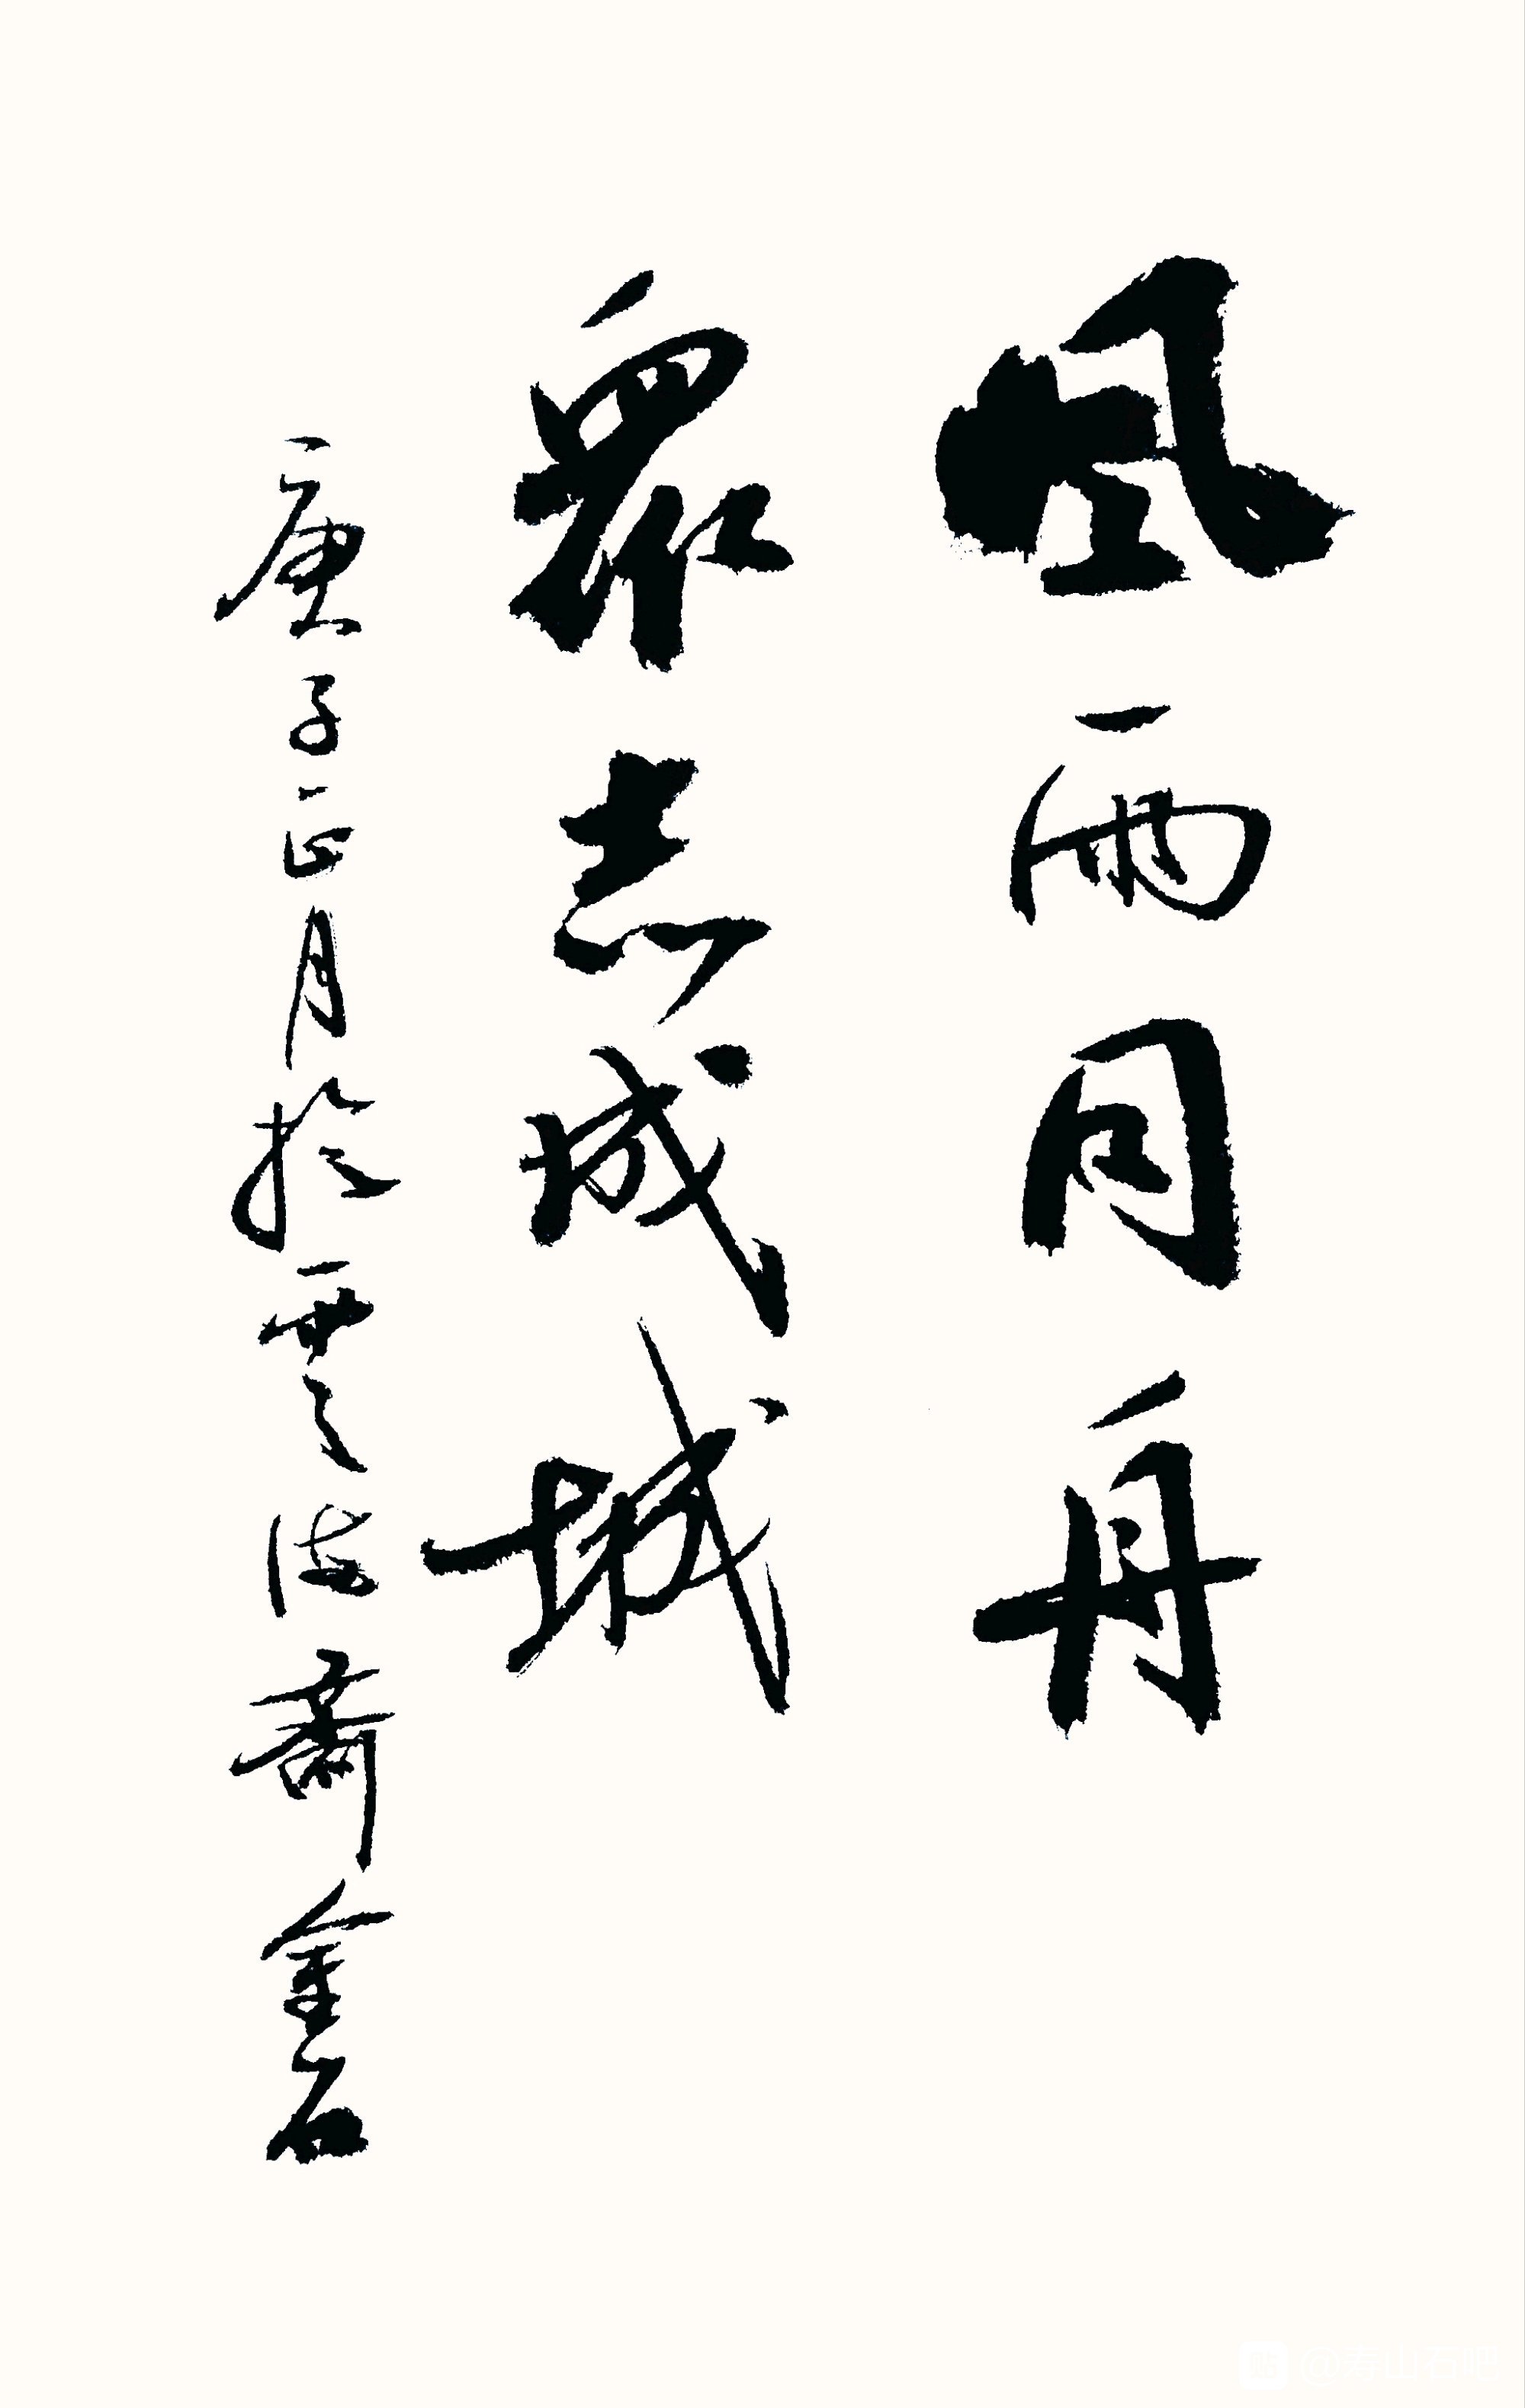 風雨同舟
眾志成城
庚子正月於雲海齋金石